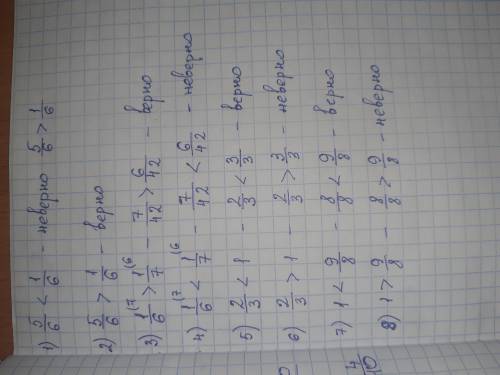 1) 5/6 < 1/6 - неверно 5/6 > 1/6
2) 5/6 > 1/6 - верно
3) 1/6 (7 > 1/7 (6 - 7/42 > 6/42 - верно
4) 1/6 (7 < 1/7 (6 - 7/42 < 6/42 - неверно
5) 2/3 < 1 - 2/3 < 3/3 - верно
6) 2/3 > 1 - 2/3 > 3/3 - неверно
7) 1 < 9/8 - 8/8 < 9/8 - верно
8) 1 > 9/8 - 8/8 > 9/8 - неверно
4/10